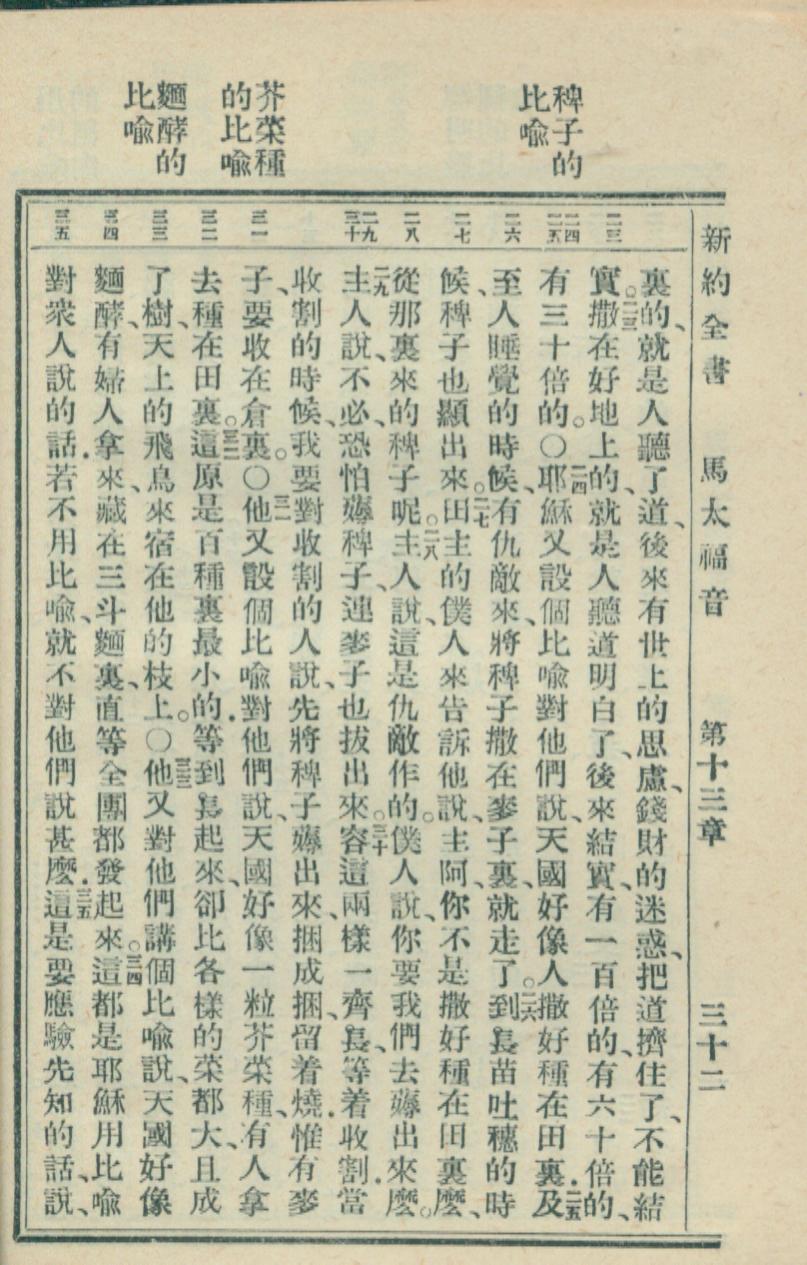 新約全書 馬太福音 第十三章 三十二
稗子的
比喻
芥菜種
的比喻
麵酵的
比喻
二三
二四
二五
二六
二七
二八
二九
三十
三一
三二
三三
三四
三五
裏的、就是人聽了道、後來有世上的思慮、錢財的迷惑、把道擠住了、不能結
實。二三撒在好地上的、就是人聽道明白了、後來結實、有一百倍的、有六十倍的、
有三十倍的。〇二四耶穌又設個比喻對他們說、天國好像人撒好種在田裏.二五及
至人睡覺的時候、有仇敵來、將稗子撒在麥子裏、就走了。二六到長苗吐穗的時
候、稗子也顯出來。二七田主的僕人來告訴他說、主阿、你不是撒好種在田裏麼、
從那裏來的稗子呢。二八主人說、這是仇敵作的。僕人說、你要我們去薅出來麼。
二九主人說、不必、恐怕薅稗子、連麥子也拔出來。三十容這兩樣一齊長、等着收割.當
收割的時候、我要對收割的人說、先將稗子薅出來、捆成捆、留着燒.惟有麥
子、要收在倉裏。〇三一他又設個比喻對他們說、天國好像一粒芥菜種、有人拿
去種在田裏。三二這原是百種裏最小的.等到長起來、卻比各樣的菜都大、且成
了樹、天上的飛鳥來宿在他的枝上。〇三三他又對他們講個比喻說、天國好像
麵酵、有婦人拿來、藏在三斗麵裏、直等全團都發起來。三四這都是耶穌用比喻
對衆人說的話.若不用比喻、就不對他們說甚麼.三五這是要應驗先知的話、說、